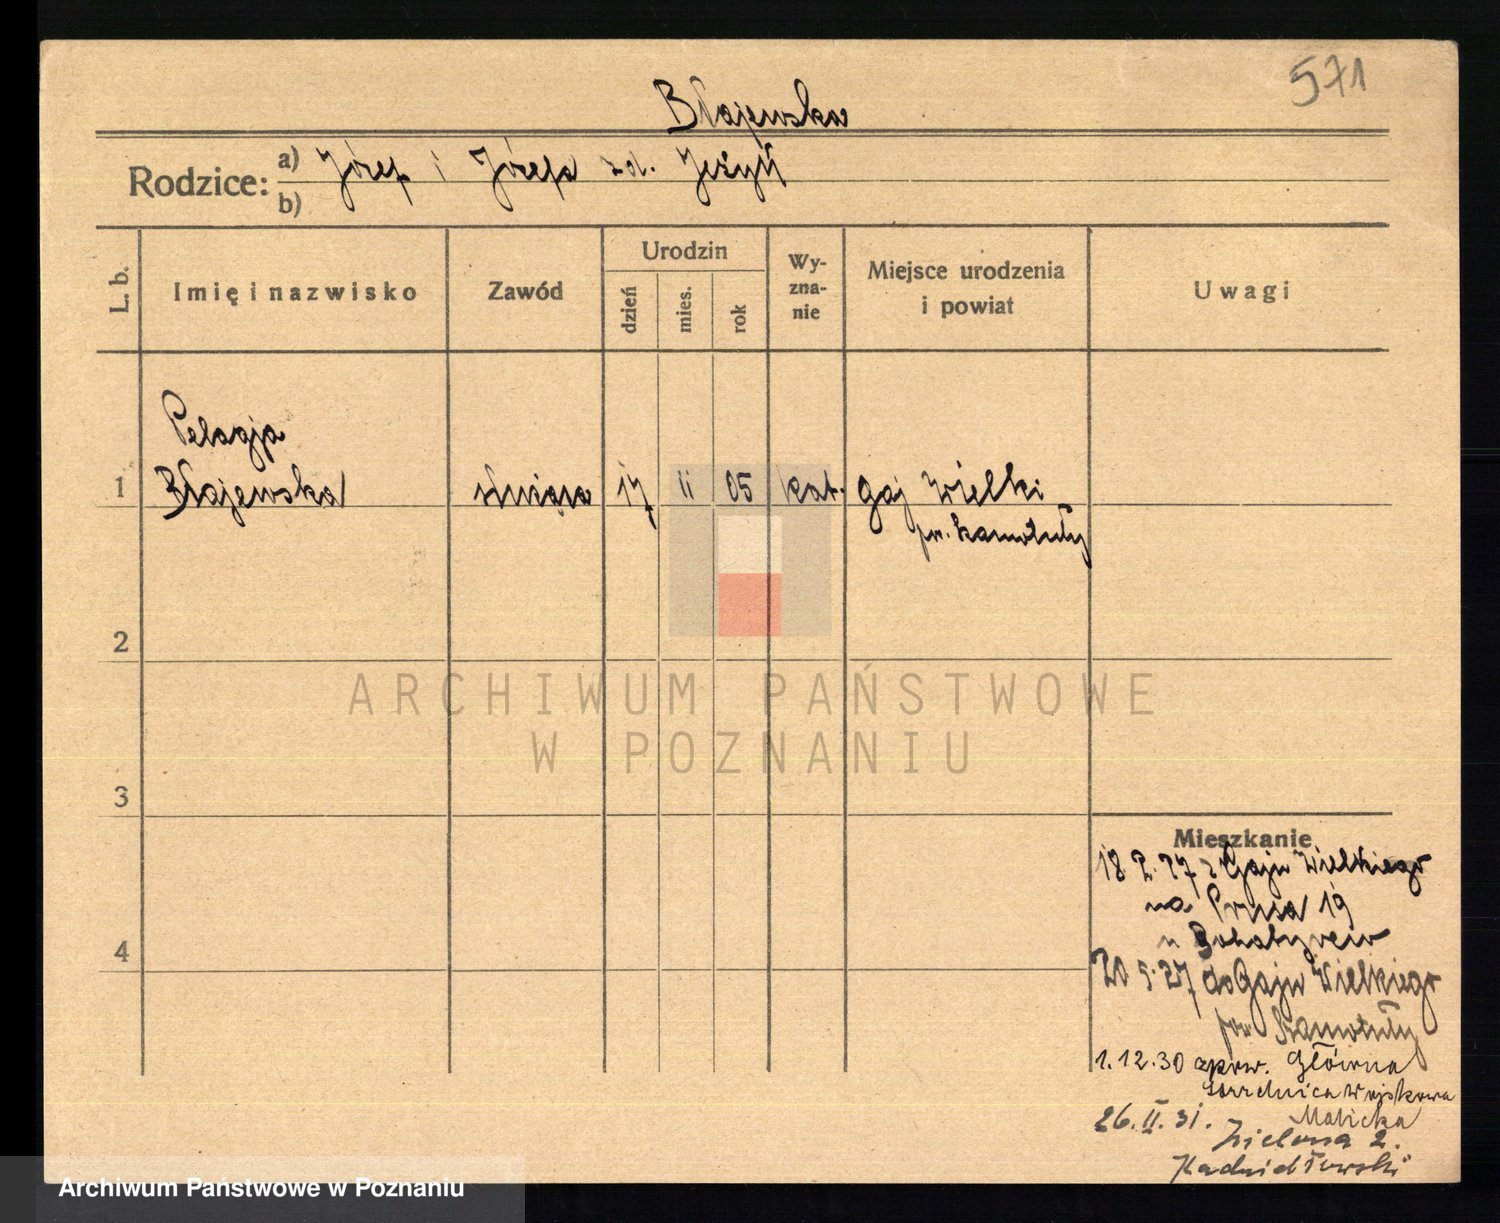 571
Błajewska
Rodzice: a) Józef i Józefa zd. Jeżyk
b)
L. b.
Imię i nazwisko
Zawód
Urodzin
dzień
mies.
rok
Wy-
zna-
nie
Miejsce urodzenia
i powiat
Uwagi
Pelagja
1 Błajewska służąca 17 II 05 kat. Gaj Wielki
pw. Szamotuły
2
3
4
ARCHIWUM PAŃSTWOWE
W POZNANIU
Mieszkanie
18 2.27 z Gaju Wielkiego
na Prusa 19
u
20 5.27 do Gaju Wielkiego
pow. Szamotuły
1.12.30 Główna
Wojskowa
Malicka
26.II.31. Zielona 2.
Kadzidłowski
Archiwum Państwowe w Poznaniu